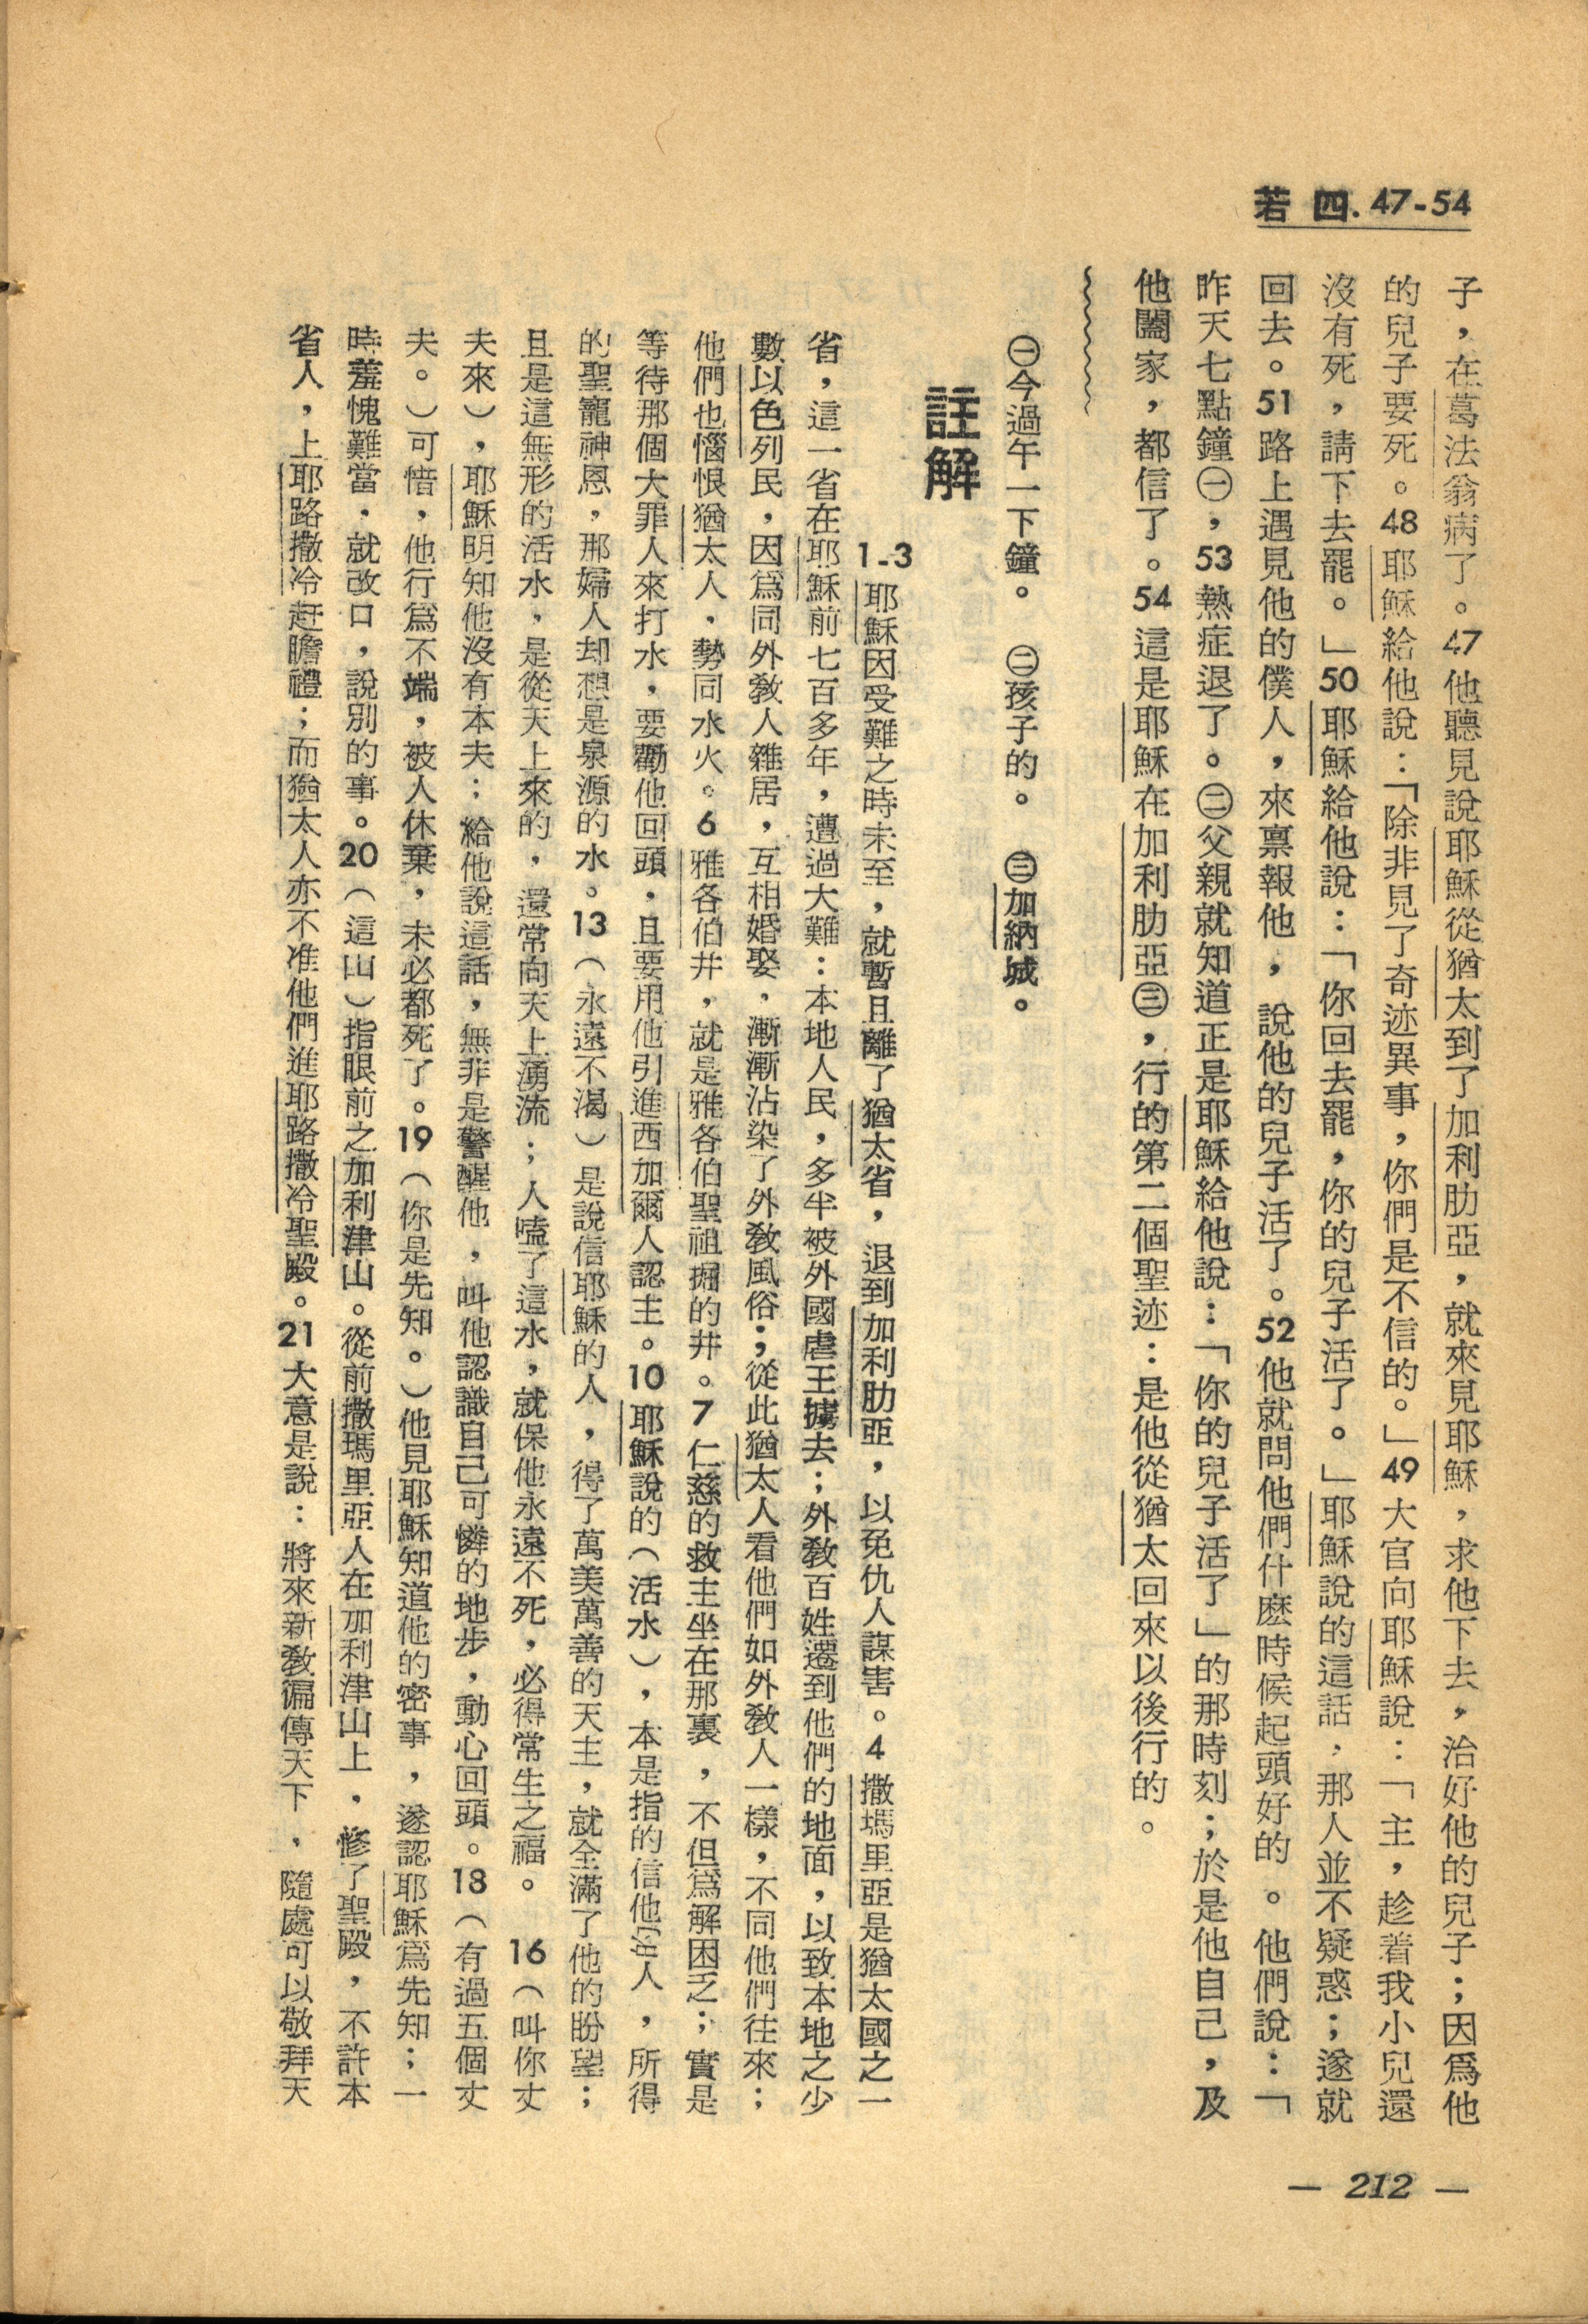 若四. 47-54
子，在葛法翁病了。47他聽見說耶穌從猶太到了加利肋亞，就來見耶穌，求他下去，治好他的兒子；因爲他
的兒子要死。48耶穌給他說：「除非見了奇迹異事，你們是不信的。」49大官向耶穌說：「主，趁着我小兒還
沒有死，請下去罷。」50耶穌給他說：「你回去罷，你的兒子活了。」耶穌說的這話，那人並不疑惑；遂就
回去。51路上遇見他的僕人，來禀報他，說他的兒子活了。52他就問他們什麽時候起頭好的。他們說：「
昨天七點鐘㊀，53熱症退了。㊁父親就知道正是耶穌給他說：「你的兒子活了」的那時刻；於是他自己，及
他闔家，都信了。54這是耶穌在加利肋亞㊂，行的第二個聖迹：是他從猶太回來以後行的。
㊀今過午一下鐘。　㊁孩子的。　㊂加納城。
註解
1-3耶穌因受難之時未至，就暫且離了猶太省，退到加利肋亞，以免仇人謀害。4撒瑪里亞是猶太國之一
省，這一省在耶穌前七百多年，遭過大難：本地人民，多半被外國虐王擄去；外敎百姓遷到他們的地面，以致本地之少
數以色列民，因爲同外敎人雜居，互相婚娶，漸漸沾染了外敎風俗；從此猶太人看他們如外敎人一樣，不同他們往來；
他們也惱恨猶太人，勢同水火。6雅各伯井，就是雅各伯聖祖掘的井。7仁慈的救主坐在那裏，不但爲解困乏；實是
等待那個大罪人來打水，要勸他回頭，且要用他引進西加爾人認主。10耶穌說的（活水），本是指的信他的人，所得
的聖寵神恩，那婦人却想是泉源的水。13（永遠不渴）是說信耶穌的人，得了萬美萬善的天主，就全滿了他的盼望；
且是這無形的活水，是從天上來的，還常向天上湧流；人嗑了這水，就保他永遠不死，必得常生之福。　16（叫你丈
夫來），耶穌明知他沒有本夫：給他說這話，無非是警醒他，叫他認識自己可憐的地步，動心回頭。18（有過五個丈
夫。）可惜，他行爲不端，被人休棄，未必都死了。19（你是先知。）他見耶穌知道他的密事，遂認耶穌爲先知；一
時羞愧難當，就改口，說別的事。20（這山）指眼前之加利津山。從前撒瑪里亞人在加利津山上，修了聖殿，不許本
省人，上耶路撒冷赶瞻禮；而猶太人亦不准他們進耶路撒冷聖殿。21大意是說：將來新敎徧傳天下，隨處可以敬拜天
— 212 —